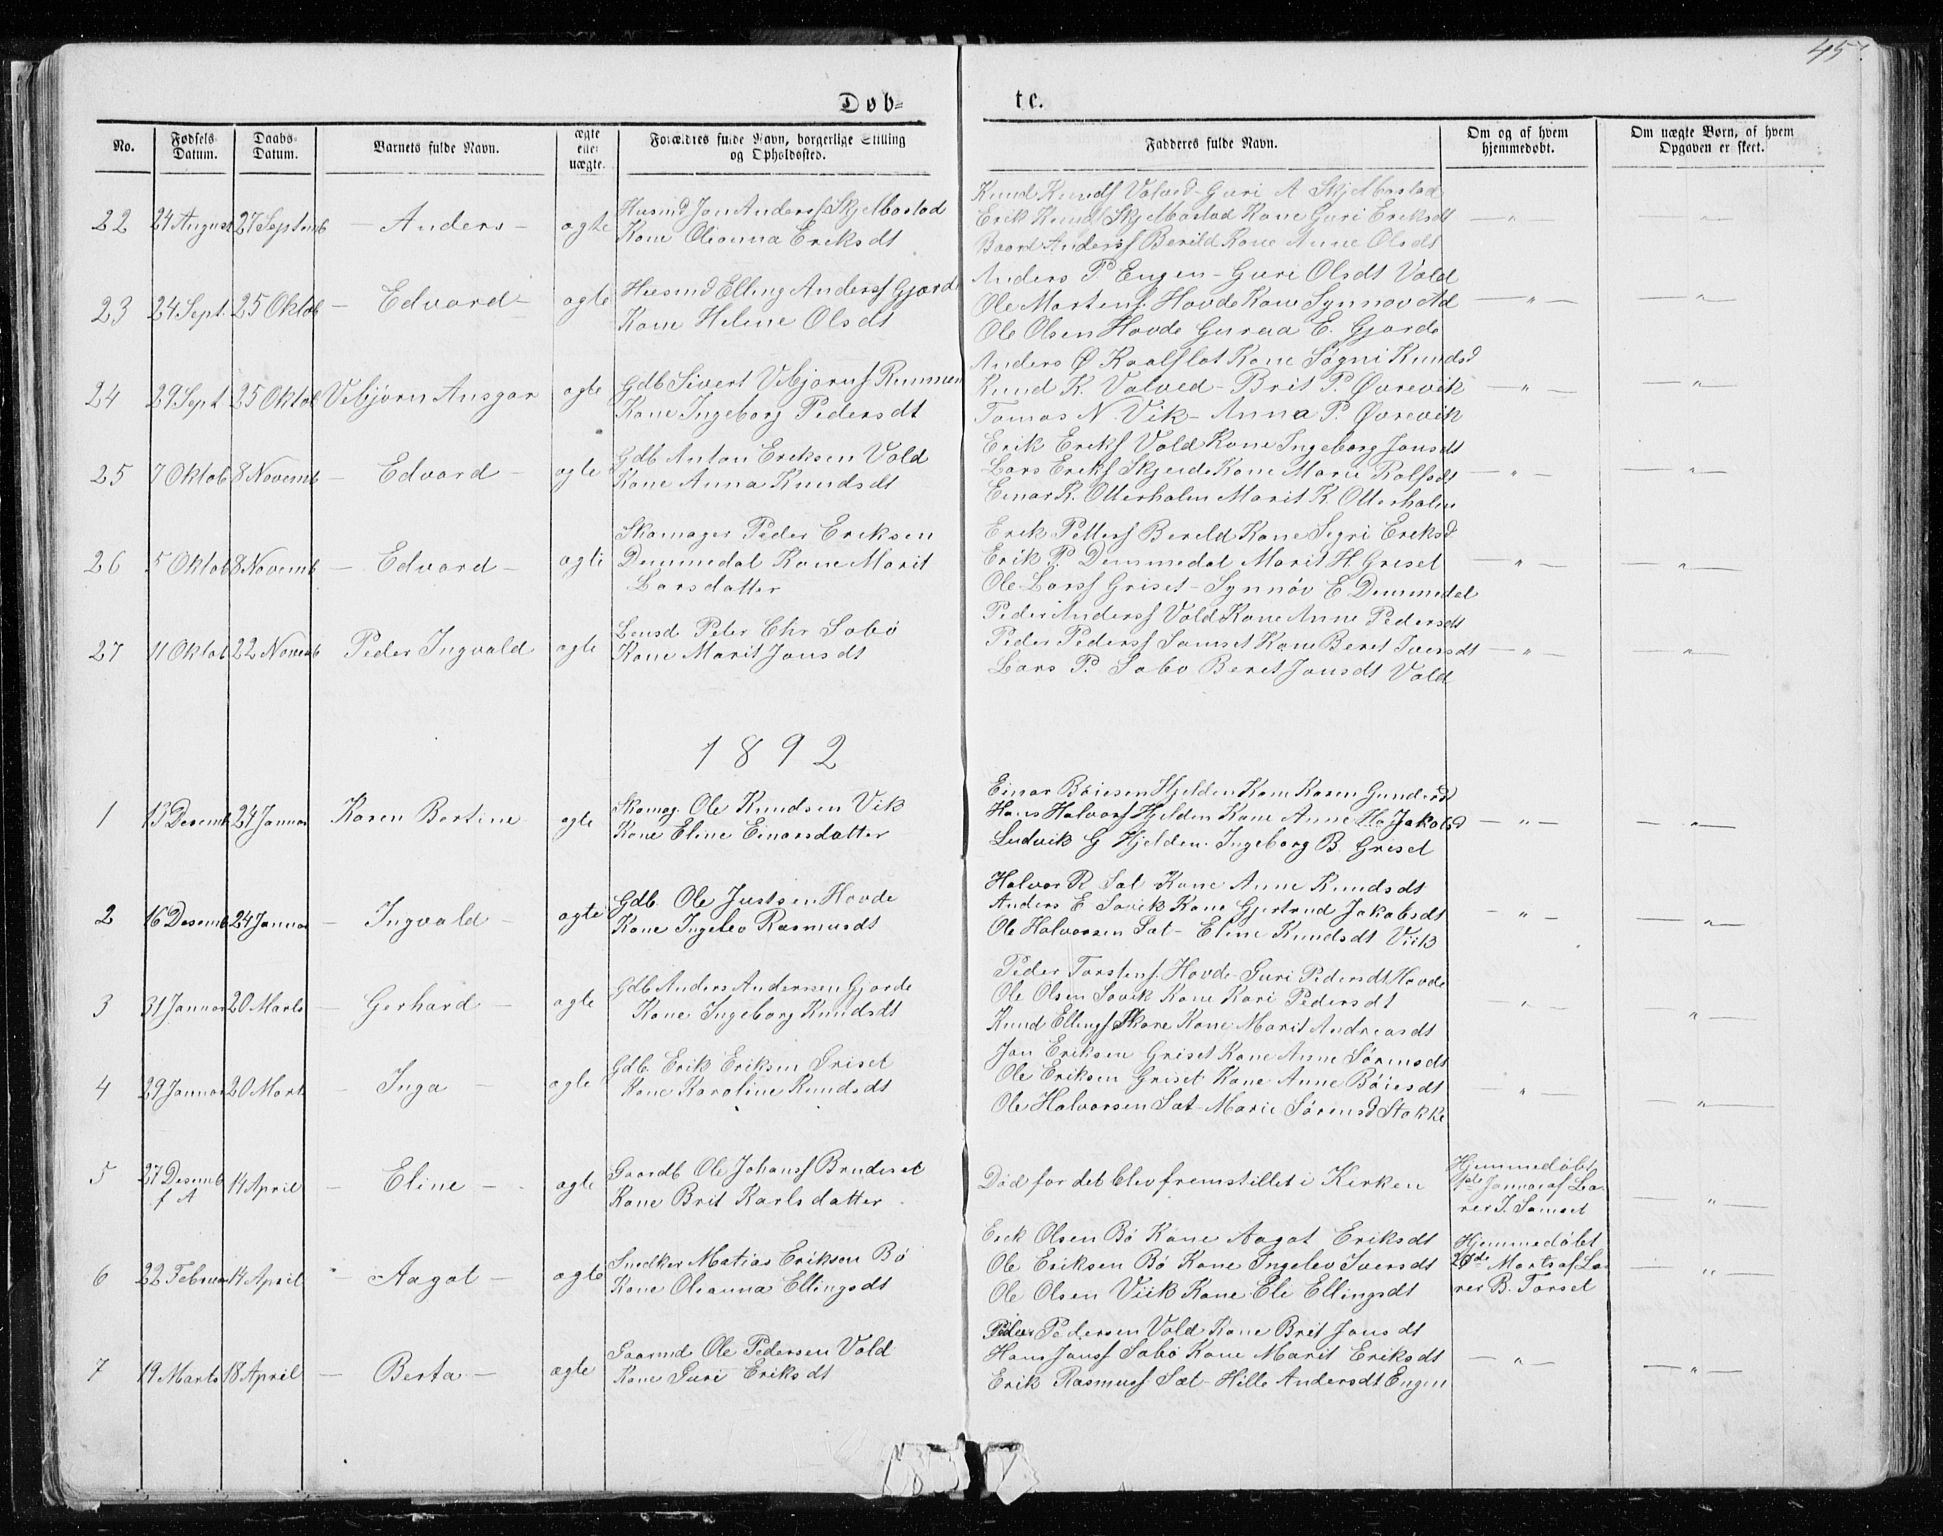 45.
Døb-
te.
No.
Fødsels Datum.
Daabs-Datum.
Barnets fulde Navn.
ægte eller uægte.
Forældres fulde Navn, borgerlige Stilling og Opholdssted.
Fadderes fulde Navn.
Om og af hvem hjemmedøbt.
Om uægte Børn, af hvem Opgaven er skeet.
22 24 August 27 Septemb - Anders - ægte
Husmd Jon Anderss Skjelbostad
Kone Olianna Eriksdt
Knud Knuds Valved - Guri A Skjelbostad
Erik Knuds Skjelbostad Kone Guri Eriksdt - " -
Baard Anderss Berild Kone Anne Olsdt
23 24 Sept. 25 Oktob - Edvard - ægte
Husmd Elling Anderss Gjørde
Kone Helene Olsdt
Anders P Engen - Guri Olsdt Vold
Ole Mortens. Hovde Kone Synnøv Ad - " -
Ole Olsen Hovde Gurua E. Gjørde
24 29 Sept 25 Oktob Vebjørn Ansgar ægte
Gdb Sivert Vebjørns Rummen
Kone Ingeborg Pedersdt
Anders Ø Kaalflot Kone Signi Knudsd
Knud K. Valved - Brit P. Øvrevik - " -
Tomas N. Vik - Anna P. Øvrevik
25 7 Oktob 8 Novemb - Edvard - ægte
Gdb Anton Eriksen Vold
Kone Anna Knudsdt
Erik Eriks Vold Kone Ingeborg Jonsdt
Lars Eriks Skjeide Kone Marie Rolfsdt - " -
Einar K. Otterholm Marit K. Otterholm
26 5 Oktob 8 Novemb - Edvard - ægte
Skomager Peder Eriksen
Demmedal Kone Marit
Larsdatter
Erik Petters Berild Kone Segri Eriksd
Erik P. Demmedal Marit H. Griset - " -
Ole Larss Griset - Synnøv E Demmedal
27 11 Oktob 22 Novemb Peder Ingvald ægte
Lensd Peter Chr Sabø
Kone Marit Jonsdt
Peder Anderss Vold Kone Anne Pedersdt
Peder Pederss Samset Kone Beret Iversdt - " -
Lars P. Sabø Beret Jonsdt Vold
1892
1 13 Desemb 24 Januar Karen Bertine ægte
Skomag. Ole Knudsen Vik
Kone Eline Einarsdatter
Einar Böiesen Hjelden Kone Karen Gundersd
Hans Halvors Hjelden Kone Anne Ma Jakobsd - " -
Ludvik G Hjelden. Ingeborg B. Griset
2 16 Desemb 24 Januar - Ingvald - ægte
Gdb. Ole Justsen Hovde
Kone Ingelev Rasmusdt
Halvor R. Sæt Kone Anne Knudsdt
Anders E Sørvik Kone Gjertrud Jakobsdt - " -
Ole Halvorsen Sæt - Eline Knudsdt Viik
3 31 Januar 20 Marts - Gerhard - ægte
Gdb Anders Andersen Gjørde
Kone Ingeborg Knudsdt
Peder Torstens. Hovde - Guri Pedersdt Hovde
Ole Olsen Søvik Kone Kari Pedersdt - " -
Knud Ellings Skare Kone Marit Andreasdt
4 29 Januar 20 Marts - Inga - ægte
Gdb. Erik Eriksen Griset
Kone Karoline Knudsdt
Jon Eriksen Griset Kone Anne Sørensdt
Ole Eriksen Griset Kone Anne Böiesdt - " -
Ole Halvorsen Sæt - Marie Sørensd Stokke
5 27 Desemb f A 14 April - Eline - ægte
Gaardb Ole Johanss Bruderet
Kone Brit Karlsdatter
Død før det blev fremstillet i Kirken
Hjemmedøbt
1ste Januar af Læ-
rer J. Samset
6 22 Februar 14 April - Aagot - ægte
Snedker Matias Eriksen Bø
Kone Olianna Ellingsdt
Erik Olsen Bø Kone Aagot Eriksdt
Ole Eriksen Bø Kone Ingelev Iversdt
Ole Olsen Viik Kone Ele Ellingsdt
Hjemmedøbt
Marts af Læ-
rer B. Torset
7 19 Marts 18 April - Berta - ægte
Gaarmd Ole Pedersen Vold
Kone Guri Eriksdt
Peder Pedersen Vold Kone Brit Jonsdt
Hans Jonss Sabø Kone Marit Eriksdt - " -
Erik Rasmuss Sæt - Hille Andersdt Engen